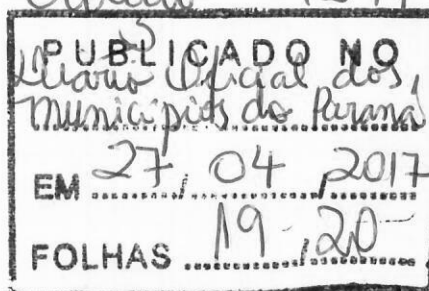 PUBLICADO NO
Diário Oficial dos
Municípios do Paraná
EM 27, 04, 2017
FOLHAS 19-,20-